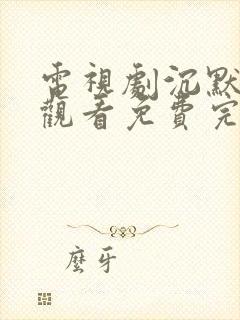 電視劇沉默
觀看免費完
麼牙